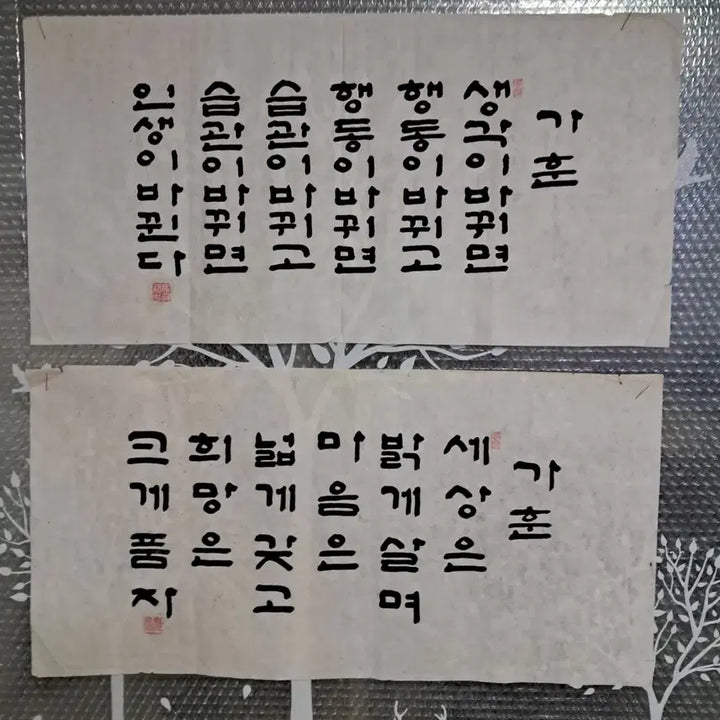 가훈
생각이바뀌면
행동이바뀌고
행동이바뀌면
습관이바뀌고
습관이바뀌면
인생이바뀐다
가훈
세상은
밝게살며
마음은
넓게갖고
희망은
크게품자